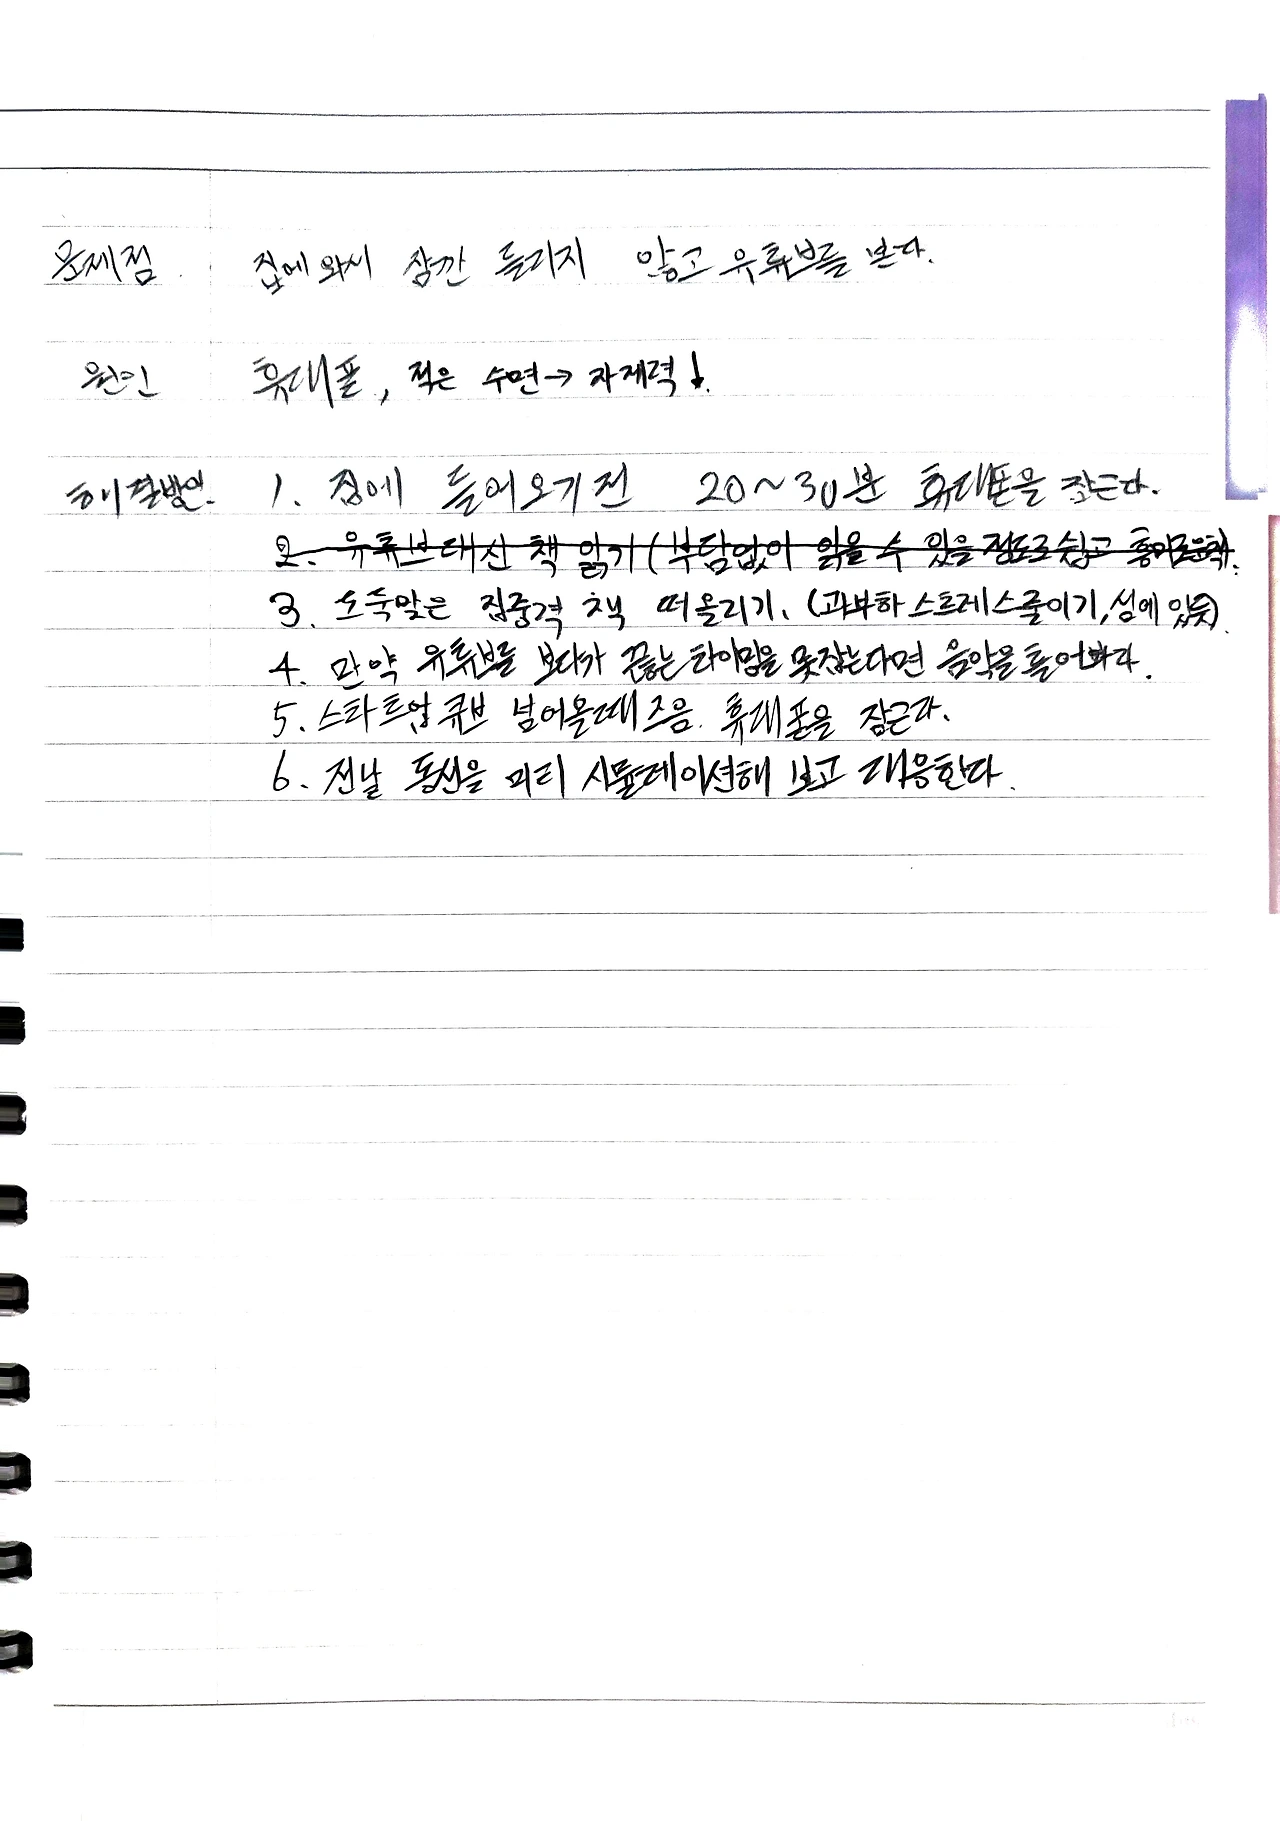 문제점 집에 와서 잠깐 들리지 않고 유튜브를 본다.
원인 휴대폰, 적은 수면→ 자제력↓.
해결방안. 1. 집에 들어오기 전 20~30분 휴대폰을 잠근다.
2. 유튜브 대신 책 읽기 (부담없이 읽을 수 있을 정도로 쉽고 흥미로운 책).
3. 도축맞은 집중력 책 떠올리기. (과부하 스트레스 줄이기, 섬에 있듯).
4. 만약 유튜브를 보다가 끊는 타이밍을 못잡는다면 음악을 틀어놔라.
5. 스타트업 큐브 넘어올때 즈음. 휴대폰을 잠근다.
6. 전날 동선을 미리 시뮬레이션해 보고 대응한다.